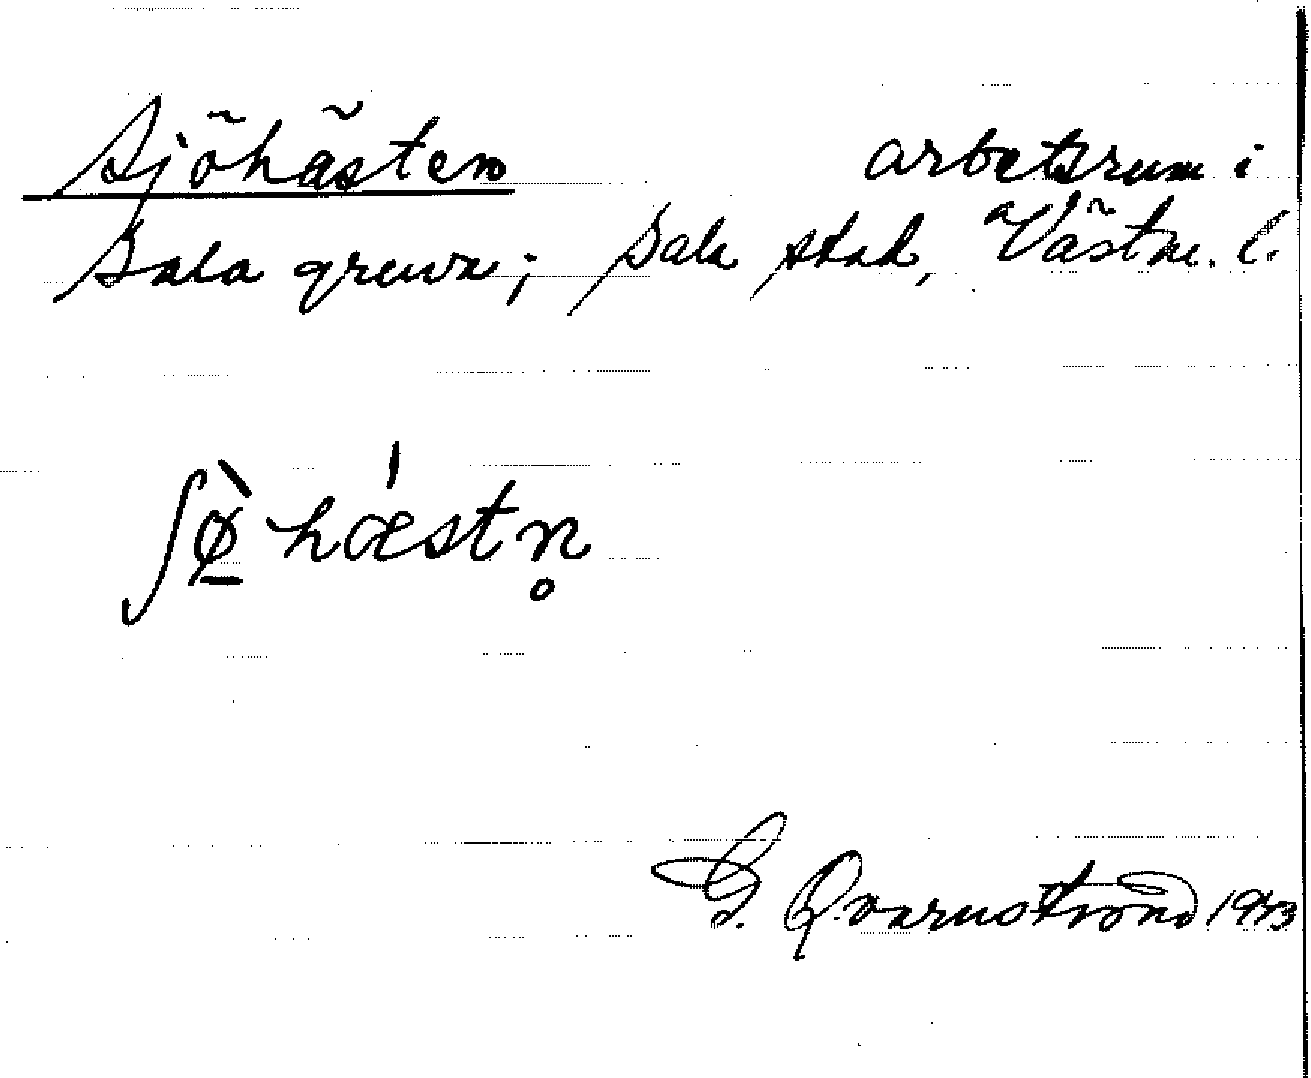 Sjöhästen arbetsrum i
Sala gruva; Sala stad, Västm. l.
ʃø̱̀ hǽstn̥
G. Qvarnström 1943